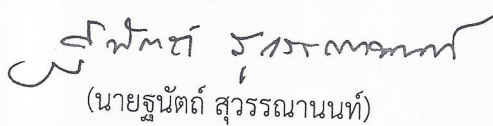 ฐนัตถ์ สุวรรณานนท์
(นายฐนัตถ์ สุวรรณานนท์)